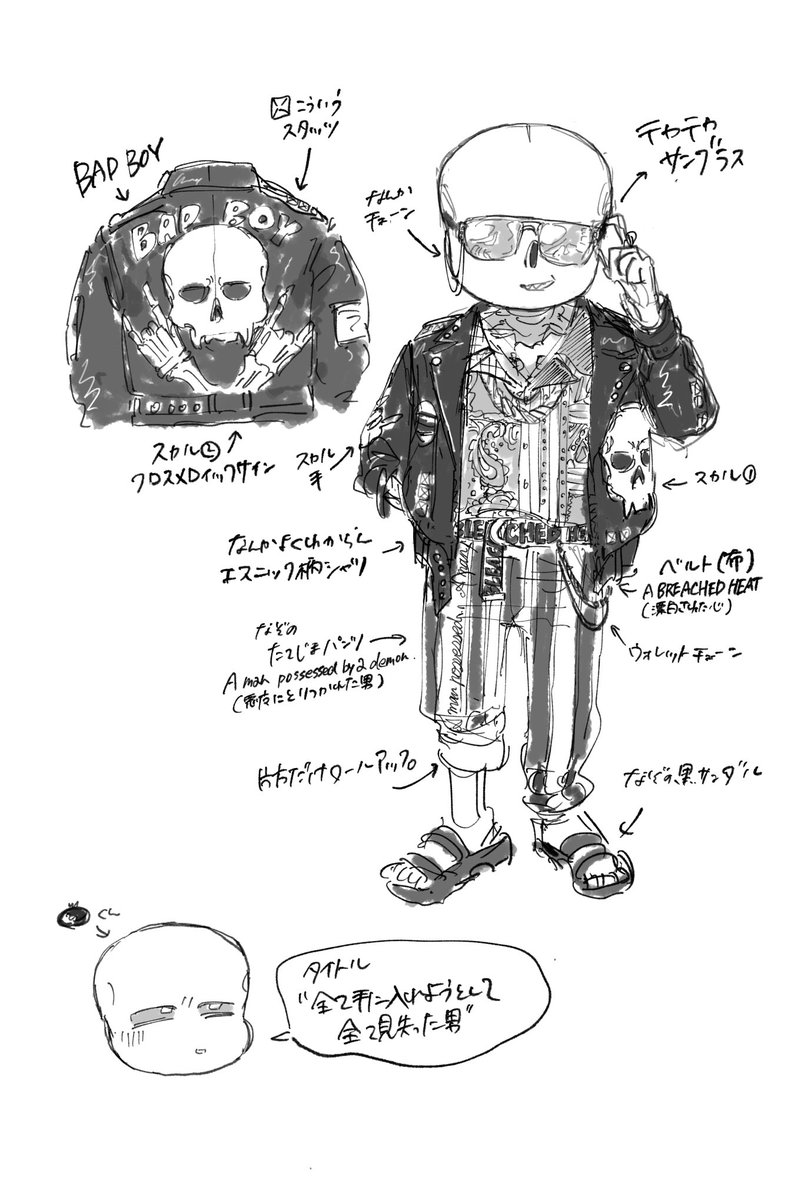 BAD BOY
こういう
スタッツ
テカテカ
サングラス
なんか
チェーン
BAD BOY
スカル②
クロスメロイックサイン
スカル
手
スカル①
なんかよくわからん
エスニック柄シャツ
CHED HEA
ベルト(布)
A BREACHED HEAT
(漂白された心)
なぞの
たてじまパンツ
A man possessed by a demon.
(悪夜にとりつかれた男)
man possessed
A man
ウォレットチェーン
片方だけロールアップ。
なぞの黒サンダル
くん
タイトル
"全て手に入れようとして
全て見失った男"